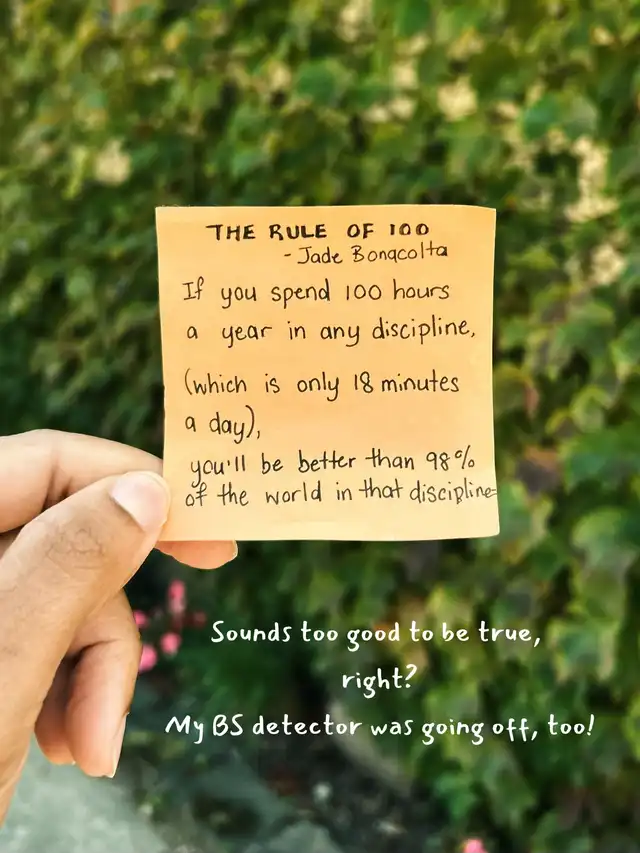 THE RULE OF 100
- Jade Bonacolta
If you spend 100 hours
a year in any discipline,
(which is only 18 minutes
a day),
you'll be better than 98%
of the world in that discipline
Sounds too good to be true,
right?
My BS detector was going off, too!